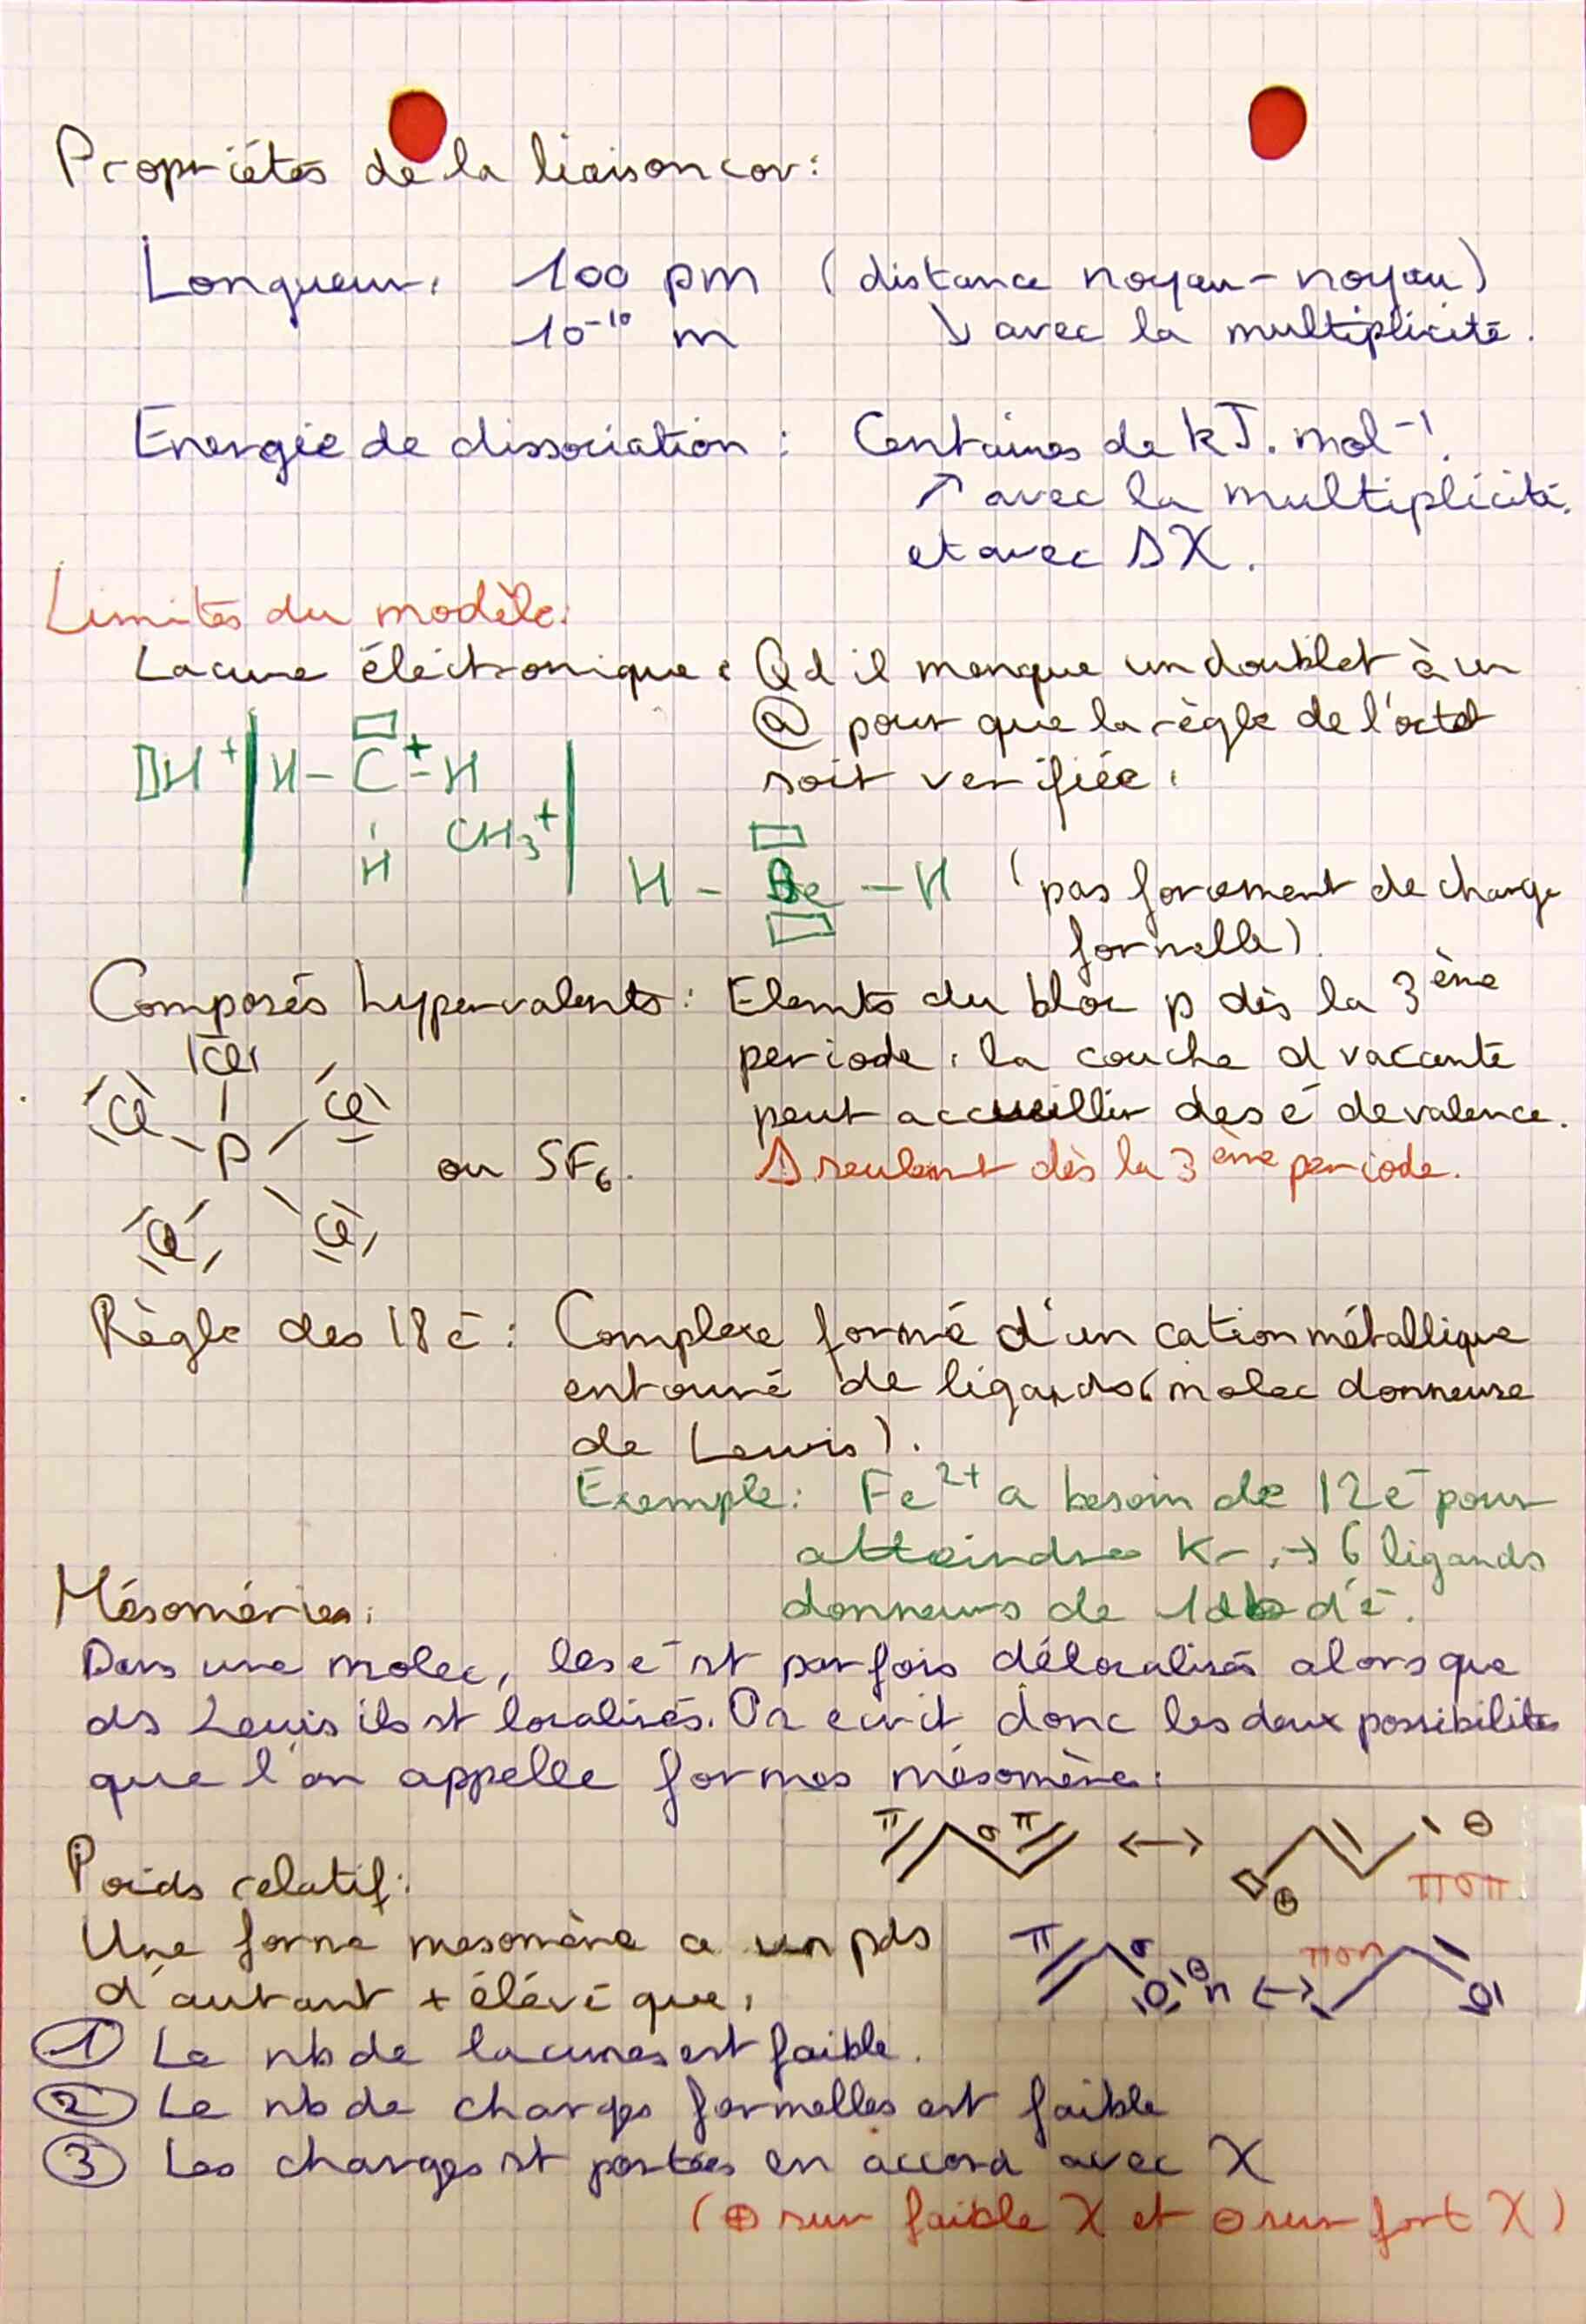 Propriétés de la liaison cov:
Longueur: 100 pm (distance noyau-noyau)
10⁻¹⁰ m ↘ avec la multiplicité.
Energie de dissociation : Centaines de kJ.mol⁻¹.
↗ avec la multiplicité.
et avec ΔX.
Limites du modèle:
Lacune éléctronique : Qd il manque un doublet à un
@ pour que la règle de l'octet
soit verifiée.
▯H⁺ | H - C⁺ - H
H CH₃⁺ |
H - Be - H (pas forcement de charge
formelle)
Composés hypervalents: Elemts du bloc p dès la 3ème
periode, la couche d vacante
peut accueillir des e⁻ de valence.
⚠ seulemt dès la 3ème periode.
|Cl|
|Cl| |Cl|
P ou SF₆.
|Cl| |Cl|
Règle des 18 e⁻ : Complexe formé d'un cation métallique
entouré de ligands (molec donneuse
de Lewis).
Exemple: Fe²⁺ a besoin de 12e⁻ pour
atteindre Kr. → 6 ligands
donneurs de 1db d'e⁻.
Mésoméries:
Dans une molec, les e⁻ st parfois délocalisés alors que
ds Lewis ils st localisés. On ecrit donc les deux possibilités
que l'on appelle formes mésomère:
π σ π ↔ ⊕ ⊖
πσπ
Poids relatif:
Une forme mesomère a un pds
d'autant + élévé que:
π σ |O|⊖ n ↔ O|
πσn
① Le nb de lacunes est faible.
② Le nb de charges formelles est faible
③ Les charges st portées en accord avec X
(⊕ sur faible X et ⊖ sur fort X)